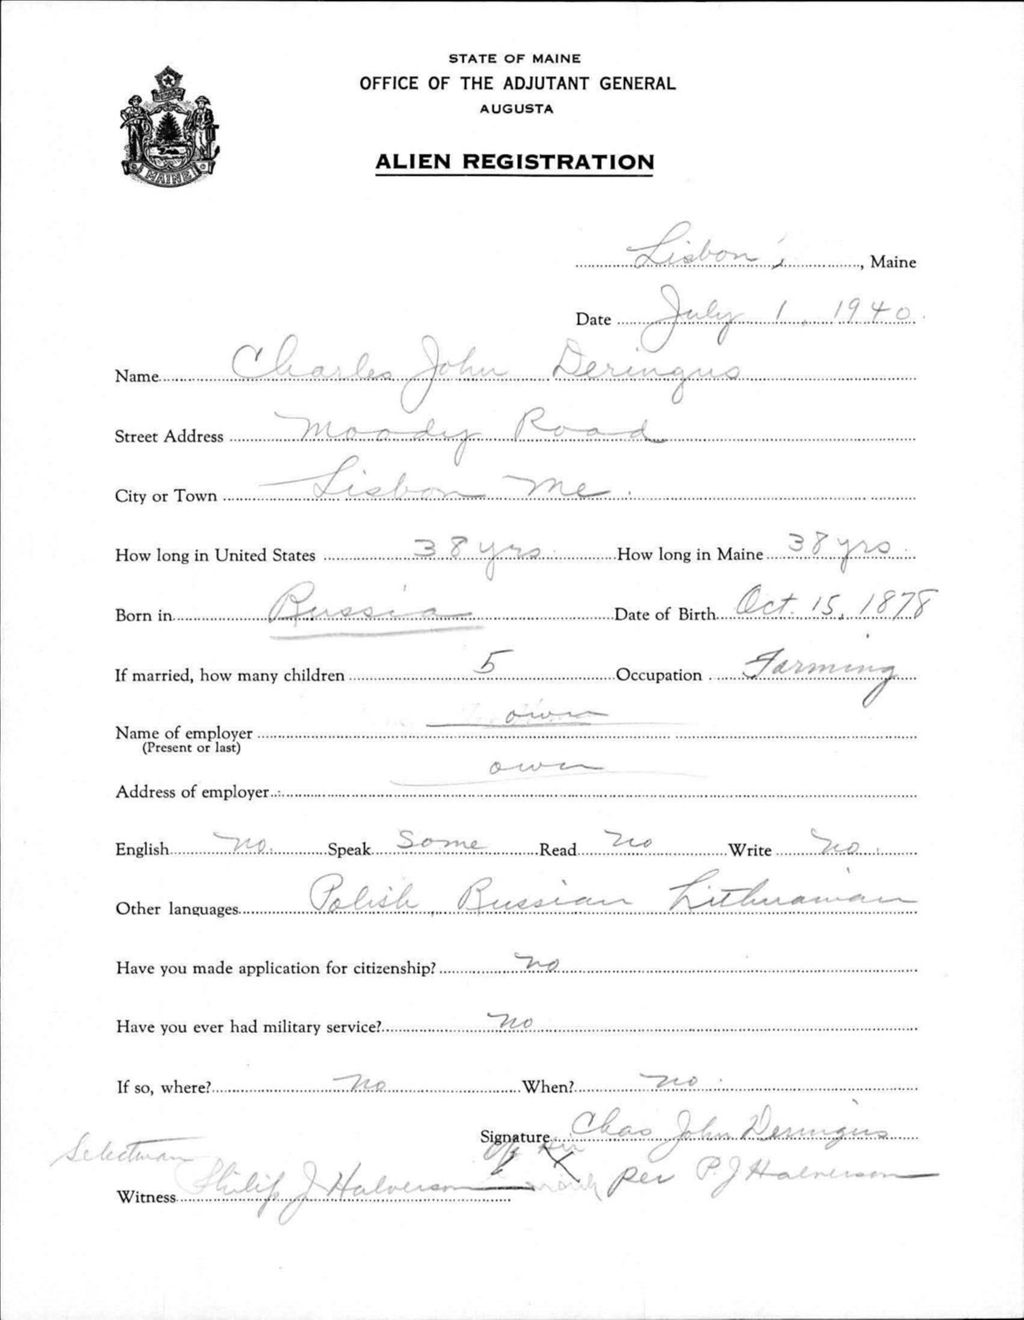 STATE OF MAINE
OFFICE OF THE ADJUTANT GENERAL
AUGUSTA
ALIEN REGISTRATION
MAINE
Lisbon, Maine
Date July 1, 1940
Name Charles John Deringus
Street Address Moody Road
City or Town Lisbon Me.
How long in United States 38 yrs How long in Maine 38 yrs
Born in Russia Date of Birth Oct. 15, 1878
If married, how many children 5 Occupation Farming
Name of employer own
(Present or last)
Address of employer own
English No. Speak Some Read No Write No
Other languages Polish, Russian Lithuanian
Have you made application for citizenship? No
Have you ever had military service? No
If so, where? No When? no
Signature Chas John Deringus
his X mark per P. J Halverson
Selectman
Witness Philip J Halverson